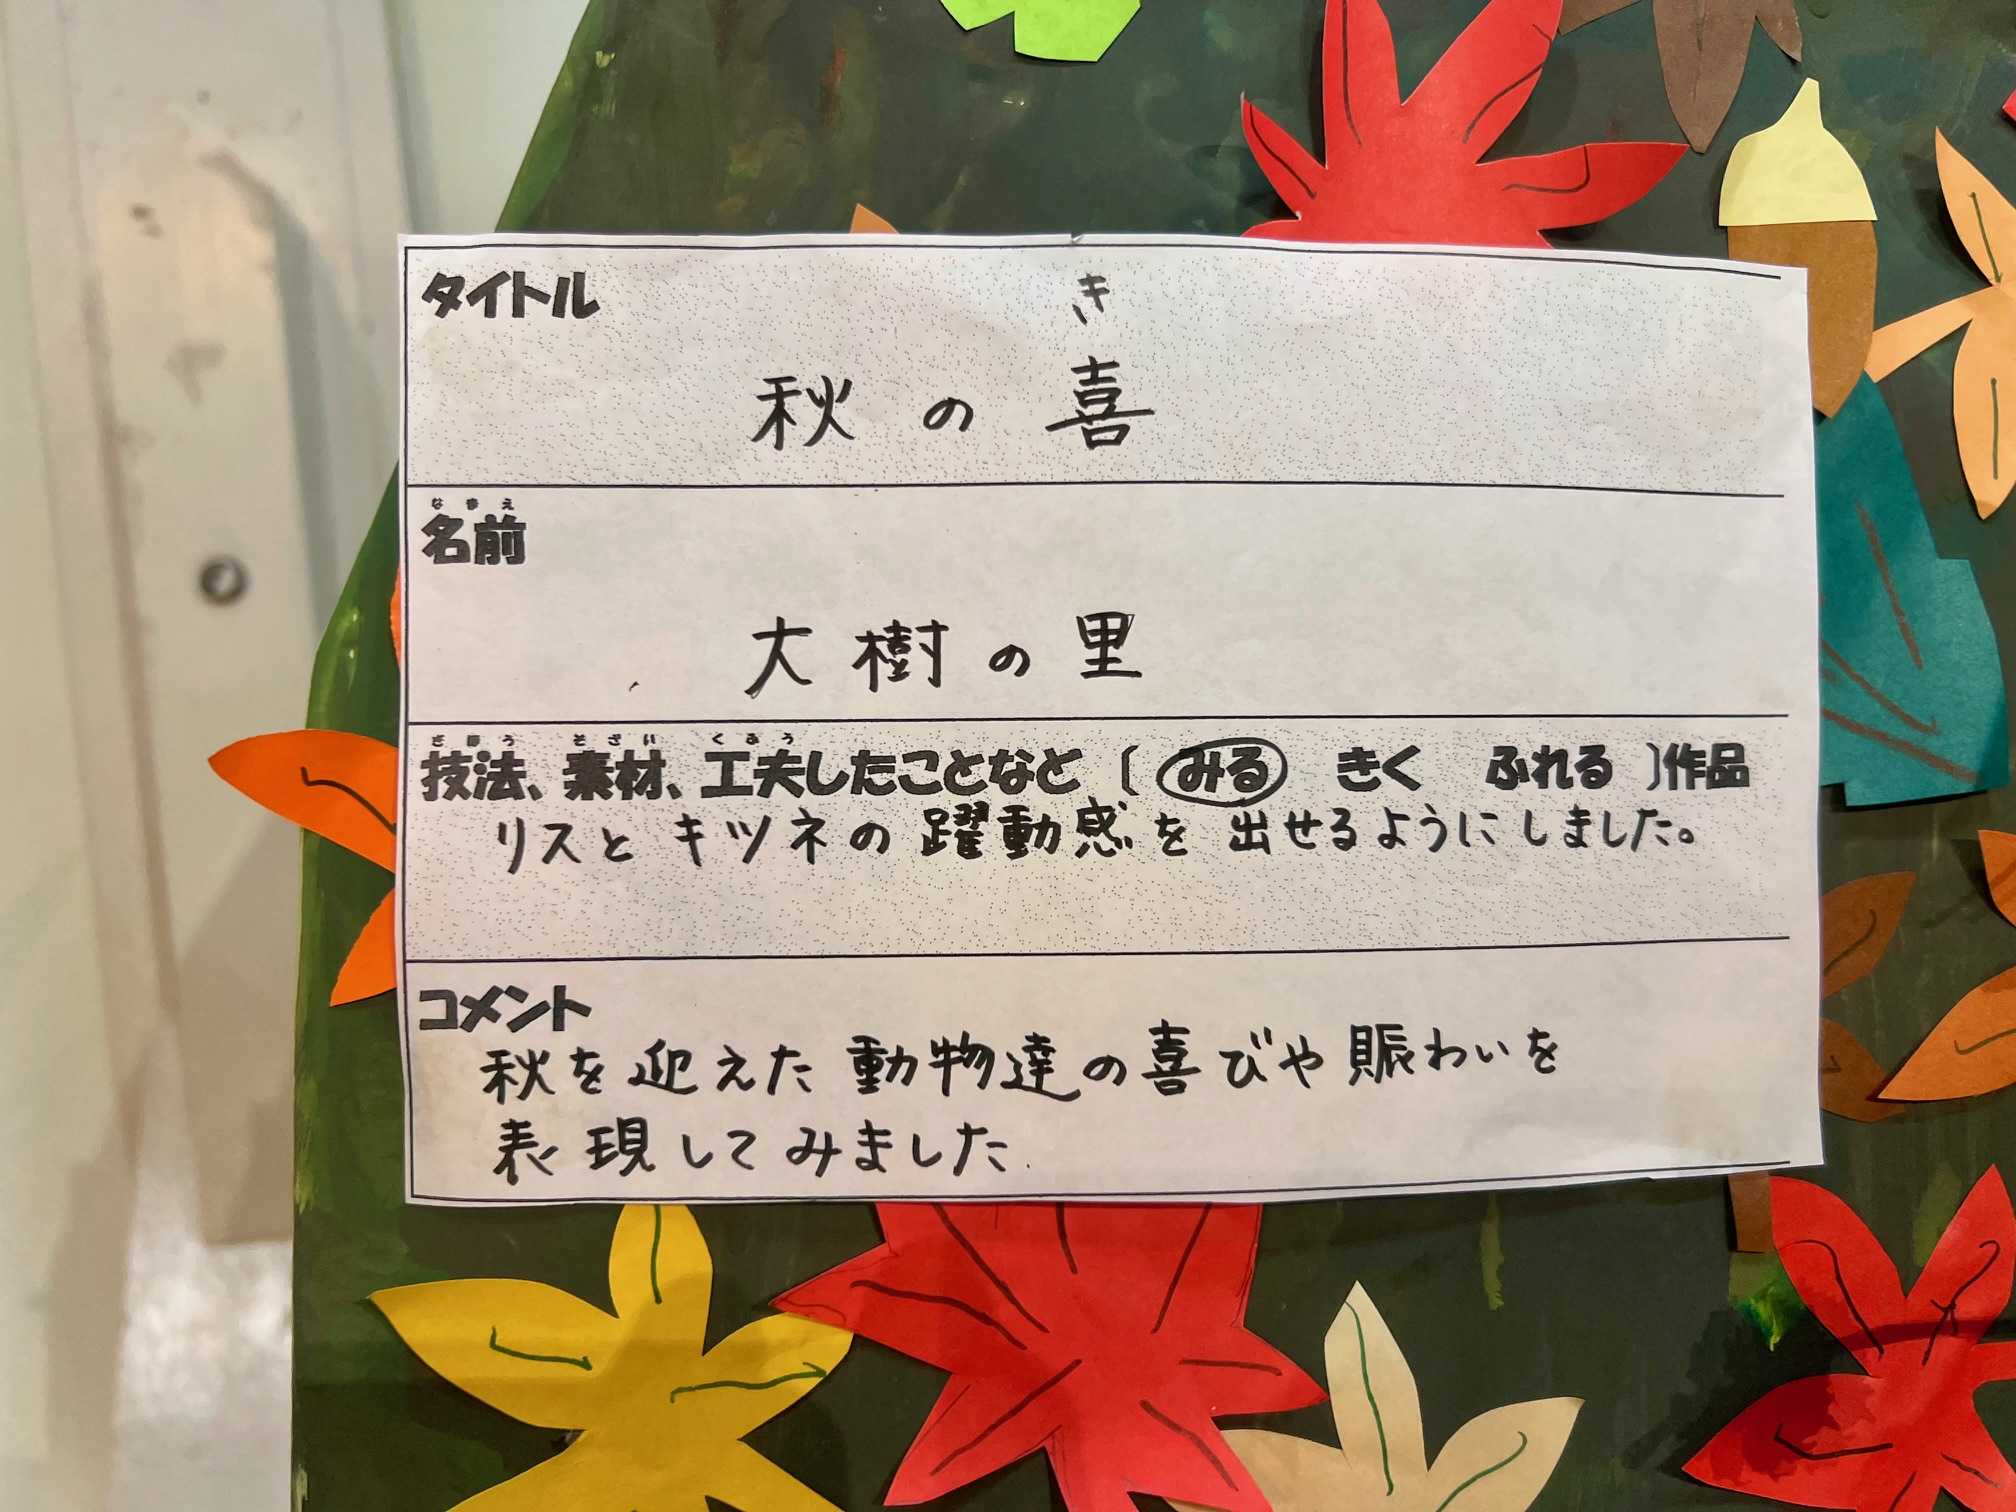 タイトル
き
秋の喜
なまえ
名前
大樹の里
ぎほう そざい くふう
技法、素材、工夫したことなど〔 みる きく ふれる 〕作品
リスとキツネの躍動感を出せるようにしました。
コメント
秋を迎えた動物達の喜びや賑わいを
表現してみました